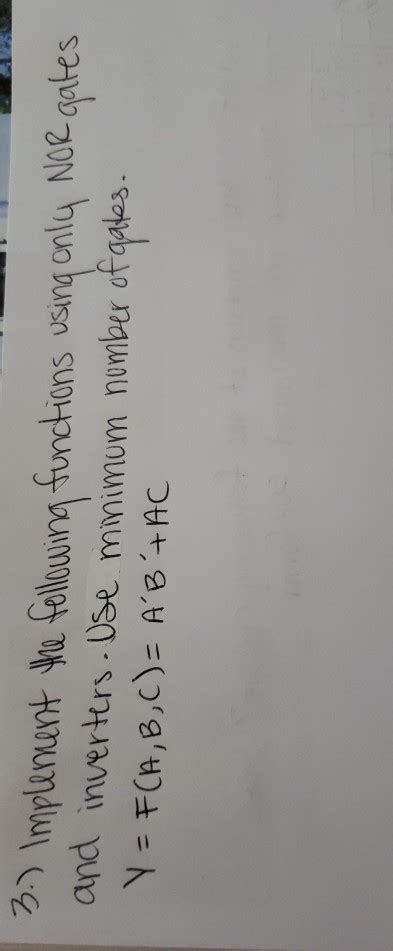 3.) Implement the following functions using only NOR gates
and inverters. Use minimum number of gates.
Y = F(A, B, C) = A'B' + AC